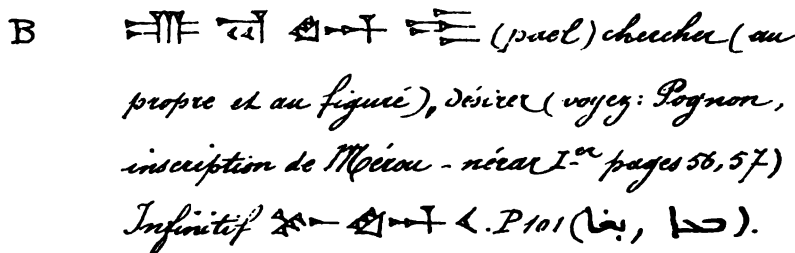 B 𒌑 𒁀 𒀪 (pael) chercher (au
propre et au figuré), désirer (voyez: Pognon,
inscription de Mérou-nérar I.er pages 56, 57)
Infinitif 𒁍 𒀪 𒌋. P 101 (بغا, ܒܥܐ).